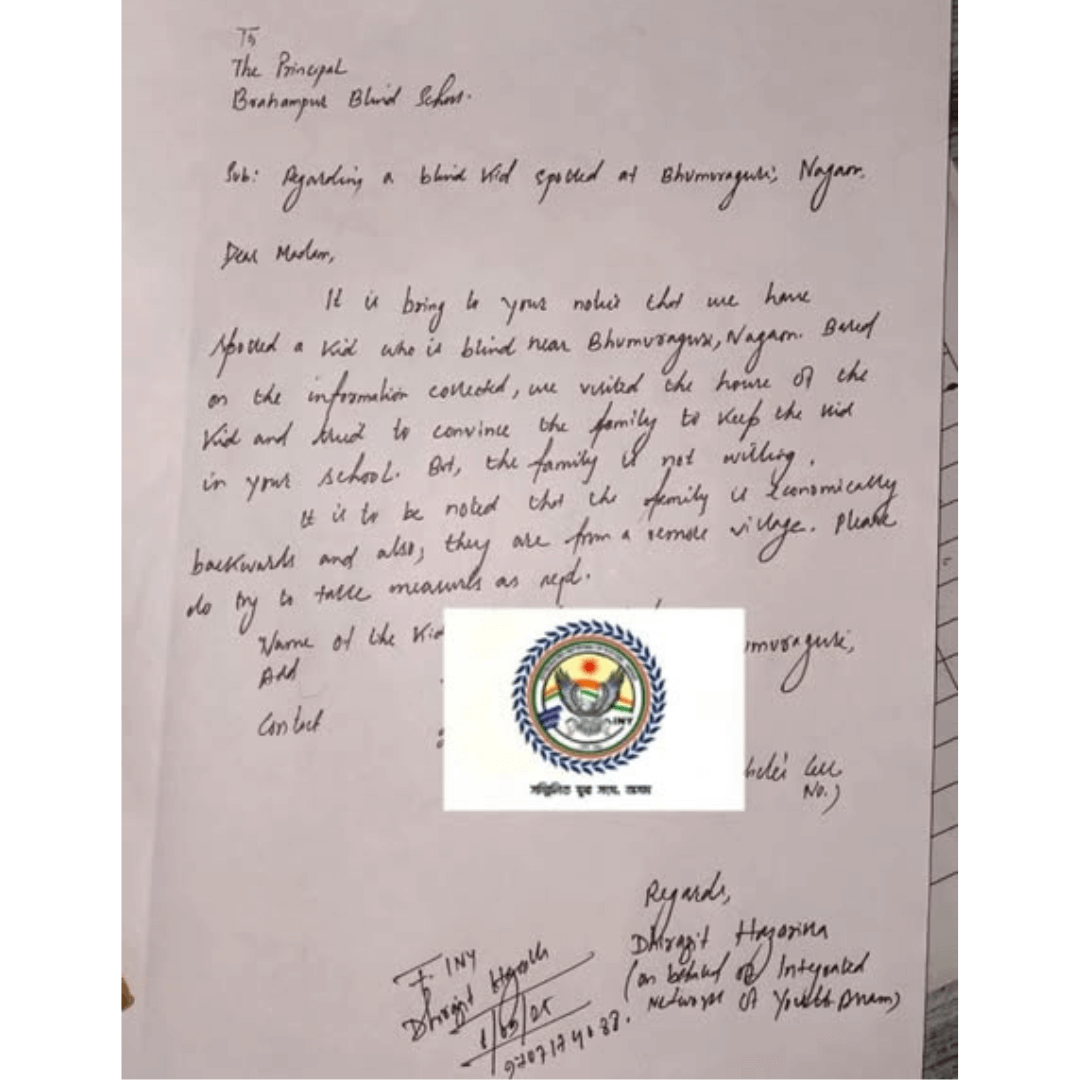 To
The Principal
Brahampur Blind School.
Sub: Regarding a blind kid spotted at Bhumuraguri, Nagaon.
Dear Madam,
It is bring to your notice that we have
spotted a kid who is blind near Bhumuraguri, Nagaon. Based
on the information collected, we visited the house of the
kid and tried to convince the family to keep the kid
in your school. But, the family is not willing.
It is to be noted that the family is economically
backwards and also, they are from a remote village. Please
do try to take measures as reqd.
Name of the Kid
Add
umuraguri,
Contact :
Cell
No.)
INY
সন্মিলিত যুৱ সংঘ, অসম
Regards,
Dhirajit Hazarika
(on behalf of Integrated
Network of Youth Assam)
INY
Dhirajit
/05/25